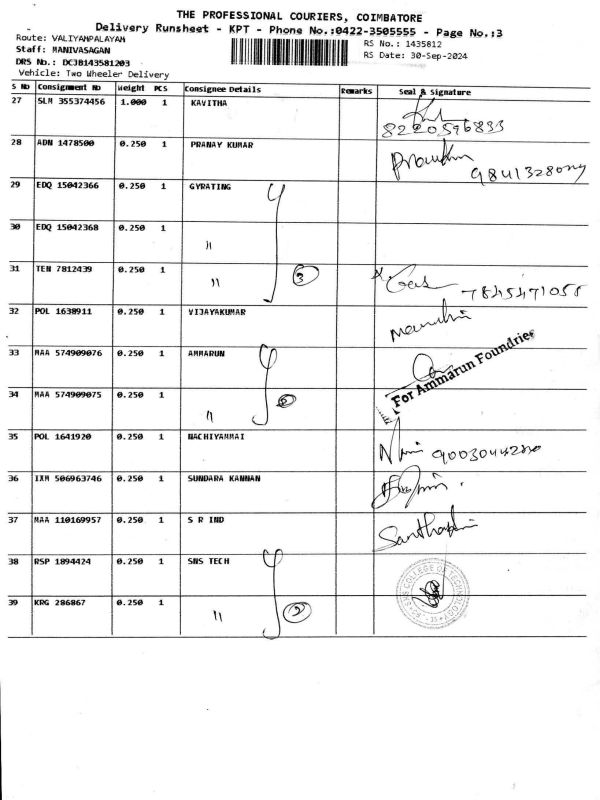 THE PROFESSIONAL COURIERS, COIMBATORE
Delivery Runsheet - KPT - Phone No.:0422-3505555 - Page No.:3
Route: VALIYAMPALAYAM
RS No.: 1435812
Staff: MANIVASAGAN
RS Date: 30-Sep-2024
DRS No.: DCJB143581203
Vehicle: Two Wheeler Delivery
S No Consignment No Weight PCS Consignee Details Remarks Seal & Signature
27 SLM 355374456 1.000 1 KAVITHA
8220596833
28 ADN 1478500 0.250 1 PRANAY KUMAR
29 EDQ 15042366 0.250 1 GYRATING
30 EDQ 15042368 0.250 1 "
31 TEN 7812439 0.250 1 " 3
7845471058
32 POL 1638911 0.250 1 VIJAYAKUMAR
33 MAA 574909076 0.250 1 AMMARUN
For Ammarun Foundries
34 MAA 574909075 0.250 1 "
35 POL 1641920 0.250 1 NACHIYAMMAI
36 IXM 506963746 0.250 1 SUNDARA KANNAN
37 MAA 110169957 0.250 1 S R IND
38 RSP 1894424 0.250 1 SNS TECH
SNS COLLEGE OF TECHNOLOGY
39 KRG 286867 0.250 1 " 2